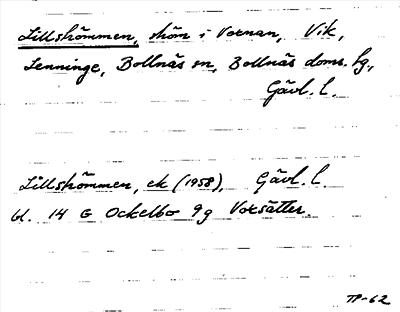 Lillströmmen, ström i Voxnan, Vik,
Lenninge, Bollnäs sn, Bollnäs doms. hg.,
Gävl. l.
Lillströmmen, ek (1958), Gävl. l.
bl. 14 G Ockelbo 9g Voxsätter.
TP-62